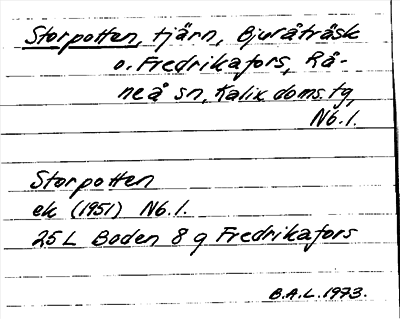 Storpotten, tjärn, Bjuråträsk
o. Fredrikafors, Rå-
neå sn, Kalix doms.tg,
Nb.l.
Storpotten
ek (1951) Nb.l.
25L Boden 8 g Fredrikafors
B.A.L. 1973.